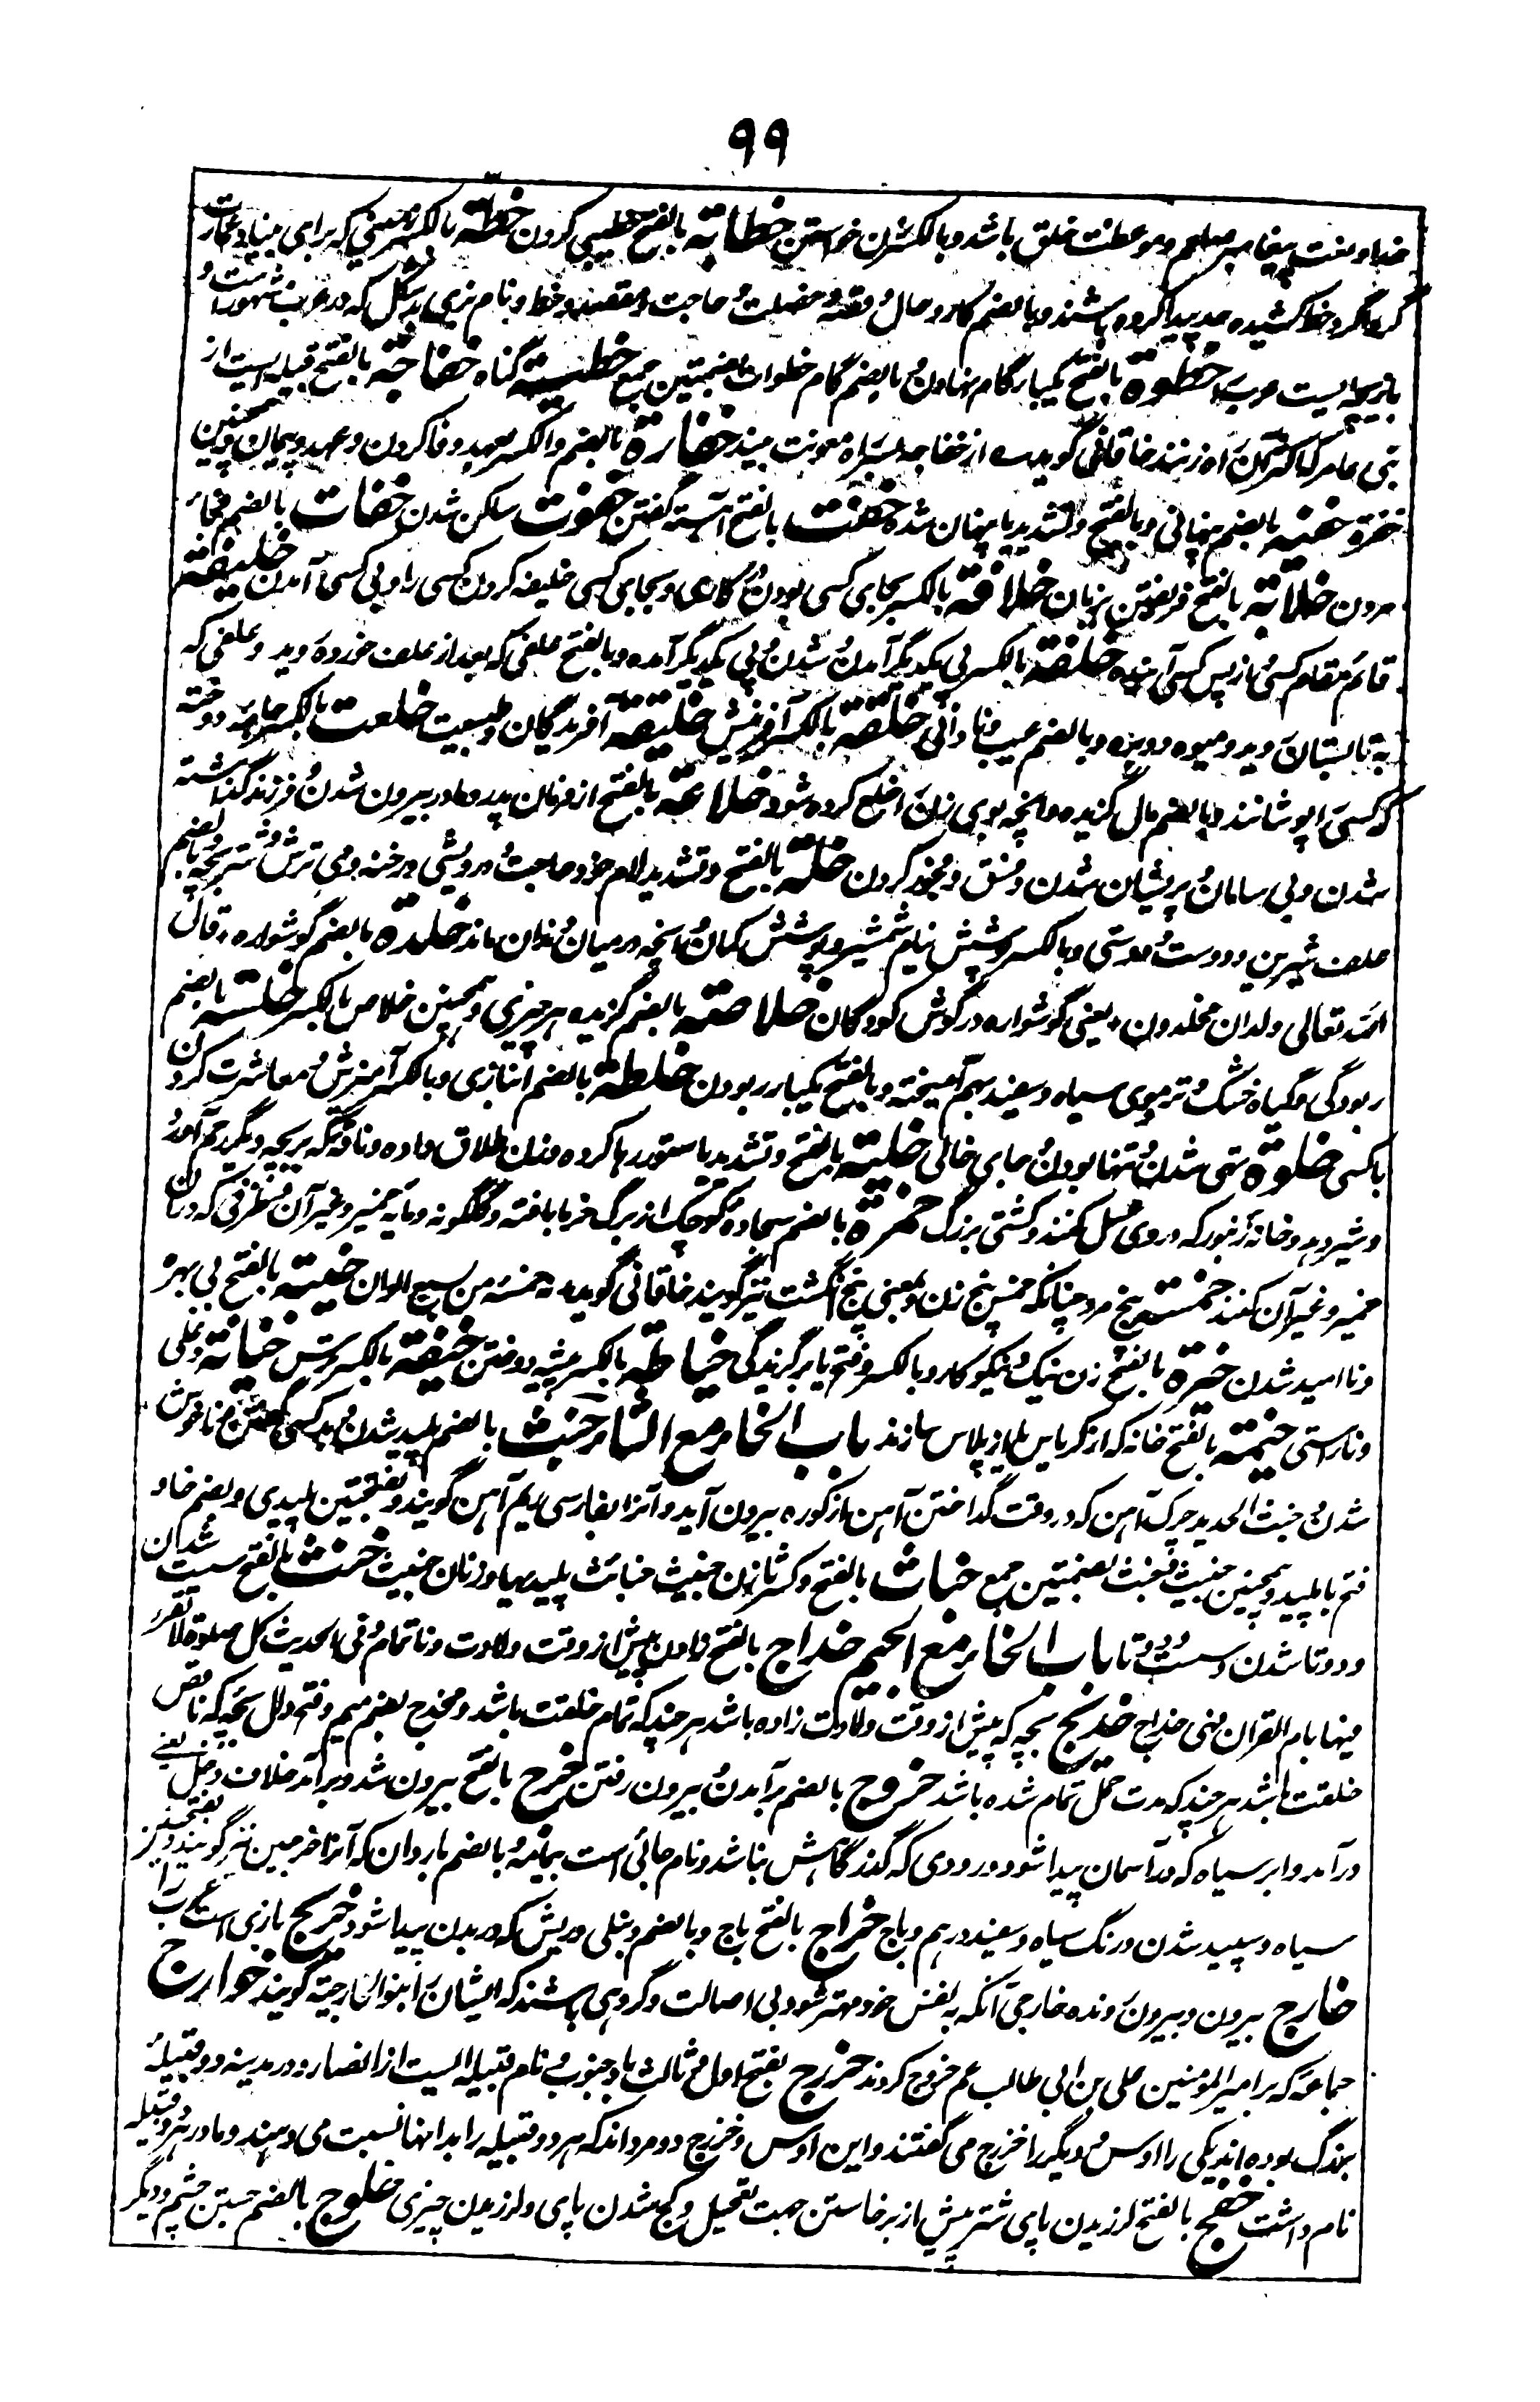 ۹۹
خدا و نعت پیغامبر صلعم و موعظت خلق باشد و بالکسر زن خواستن خطابة بالفتح خطیبی کردن خطة بالکسر زمینی که برای بنیاد عمارت
گرداگرد خط کشیده پدید کرده باشند و بالضم کار و حال و قصه و خصلت و حاجت و مقصد و خط و نام زنی بد شکل که در عرب مشهور است و
بازیچه ایست عرب را خطوة بالفتح یکبار گام نهادن و بالضم گام خطوات بضمتین جمع خطیئة گناه خفاجة بالفتح قبیله ایست از
بنی عامر که اکثر آن راه زنند خاقانی گوید ع از خفاجه بسر راه معونت بیند خفارة بالضم والکسر بعهد وفا کردن و عهد و پیمان و همچنین
خفرة خفیة بالضم پنهانی و بالفتح و تشدید یا پنهان شده خفت بالفتح آهسته گفتن خفوت ساکن شدن خفات بالضم فجائر
مردن خلابة بالفتح فریفتن بزبان خلافة بالکسر بجای کسی بودن در کاری و بجای کسی خلیفه کردن کسی را و پی کسی آمدن خلیفة
قائم مقام کسی و از پس کسی آینده خلفة بالکسر پی یکدیگر آمدن و شدن و پی یکدیگر آمده و بالفتح علفی که بعد از علف خورده روید و علفی که
به تابستان روید و میوه دویزه و بالضم عیب و نادانی خلقة بالکسر آفرینش خلیقة آفریدگان و طبیعت خلعت بالکسر جامه دوخته
که کسی را پوشانند و بالضم مال گزیده و آنچه بوی زن را خلع کرده شود خلاعة بالفتح از فرمان پدر و مادر بیرون شدن و فرزند گذاشته
شدن و بی سامان و پریشان شدن و فسق و فجور کردن خلة بالفتح و تشدید لام خو و حاجت و درویشی و رخنه و می ترش و شتر بچه و بالضم
علف شیرین و دوست و دوستی و بالکسر پوشش نیام شمشیر و پوشش کمان و آنچه در میان دندان ماند خلدة بالضم گوشواره، قال
الله تعالی ولدان مخلدون، یعنی گوشواره در گوش کودکان خلاصة بالضم گزیده هر چیزی و همچنین خلاص بالکسر خلسة بالضم
ربودگی و گیاه خشک و تر و موی سیاه و سفید بهم آمیخته و بالفتح یکبار ربودن خلطة بالضم انبازی و بالکسر آمیزش و معاشرت کردن
با کسی خلوة تهی شدن و تنها بودن و جای خالی خلیة بالفتح و تشدید یا ستور رها کرده و زن طلاق داده و ناقه که بر بچه دیگر رحم آورد
و شیر دهد و خانه زنبور که در وی عسل کنند و کشتی بزرگ خمرة بالضم سجاده کوچک از برگ خرما بافته و گلگونه و مایه خمیر و غیر آن و ظرفی که در آن
خمیر و غیر آن کنند خمسة پنج مرد چنانکه خمس پنج زن و بمعنی پنج انگشت نیز گویند خاقانی گوید ع خمسه من سبع الوان خیبة بالفتح بی بهره
و ناامید شدن خیرة بالفتح زن نیک و نیکوکار و بالکسر و فتح یا برگزیدگی خیاطة بالکسر پیشه دوختن خیفة بالکسر ترس خیانة دغلی
و ناراستی خیمة بالفتح خانه که از کرباس یا از پلاس سازند باب الخاء مع الثاء خبث بالضم پلید شدن و بد کسی گفتن و ناخوش
شدن و خبث الحدید چرک آهن که در وقت گداختن آهن از کوره بیرون آید و آنرا بفارسی ریم آهن گویند و بفتحتین پلیدی و بضم خا و
فتح با پلید و همچنین خبیث و خبث بضمتین جمع خباث بالفتح و کسر ثا زن خبیث خبائث پلیدیها و زنان خبیث خنث بالفتح سست شدن
و دوتا شدن و سست و دوتا باب الخاء مع الجیم خداج بالفتح زادن پیش از وقت ولادت و ناتمام و فی الحدیث کل صلوة لا تقرء
فیها بام القران فهی خداج خدیج بچه که پیش از وقت ولادت زاده باشد هر چند که تمام خلقت باشد و مخدج بضم میم و فتح دال بچه که ناقص
خلقت باشد هر چند که مدت حمل تمام شده باشد خروج بالضم برآمدن و بیرون رفتن خرج بالفتح بیرون شد و برآمد خلاف دخل یعنی
درآمد و ابر سیاه که در آسمان پیدا شود و رودی که گذرگاهش نباشد و نام جائی است بیمامه و بالضم باردان که آنرا خرجین نیز گویند و بفتحتین
سیاه و سپید شدن و رنگ سیاه و سفید در هم و باج خراج بالفتح باج و بالضم دنبلی و ریش که در بدن پیدا شود خریج بازی است عرب را
خارج بیرون و بیرون رونده خارجی آنکه به نفس خود مهتر شود بی اصالت و گروهی باشند که ایشان را بنو الخارجیة گویند خوارج
جماعة که بر امیر المؤمنین علی بن ابی طالب عم خروج کردند خزرج بفتح اول و ثالث باد جنوب و نام قبیله ایست از انصار و در مدینه دو قبیله
بزرگ بوده اند یکی را اوس و دیگر را خزرج می گفتند و این اوس و خزرج دو مرد اند که هر دو قبیله را بدانها نسبت می دهند و مادر هر دو قبیله
نام داشت خفج بالفتح لرزیدن پای شتر پیش از برخاستن جهت تعجیل و کج شدن پای و لرزیدن چیزی خلوج بالضم جستن چشم و دیگر